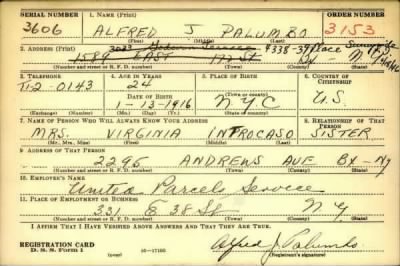 SERIAL NUMBER 1. NAME (Print) ORDER NUMBER
3606 ALFRED J PALUMBO 3153
(First) (Middle) (Last)
2. ADDRESS (Print)
1589 EAST 172 ST Bx N.Y.
(Number and street or R. F. D. number) (Town) (County) (State)
3. TELEPHONE 4. AGE IN YEARS 5. PLACE OF BIRTH 6. COUNTRY OF CITIZENSHIP
TI-2-0143 24 N Y C
DATE OF BIRTH (Town or county) U.S.
1-13-1916
(Exchange) (Number) (Mo.) (Day) (Yr.) (State or country)
7. NAME OF PERSON WHO WILL ALWAYS KNOW YOUR ADDRESS 8. RELATIONSHIP OF THAT PERSON
MRS. VIRGINIA INTROCASO SISTER
(Mr., Mrs., Miss) (First) (Middle) (Last)
9. ADDRESS OF THAT PERSON
2295 ANDREWS AVE Bx - Ny
(Number and street or R. F. D. number) (Town) (County) (State)
10. EMPLOYER'S NAME
United Parcels Service
11. PLACE OF EMPLOYMENT OR BUSINESS
331 E 38 St N Y
(Number and street or R. F. D. number) (Town) (County) (State)
I AFFIRM THAT I HAVE VERIFIED ABOVE ANSWERS AND THAT THEY ARE TRUE.
REGISTRATION CARD
D. S. S. Form 1 (over) Alfred J. Palumbo